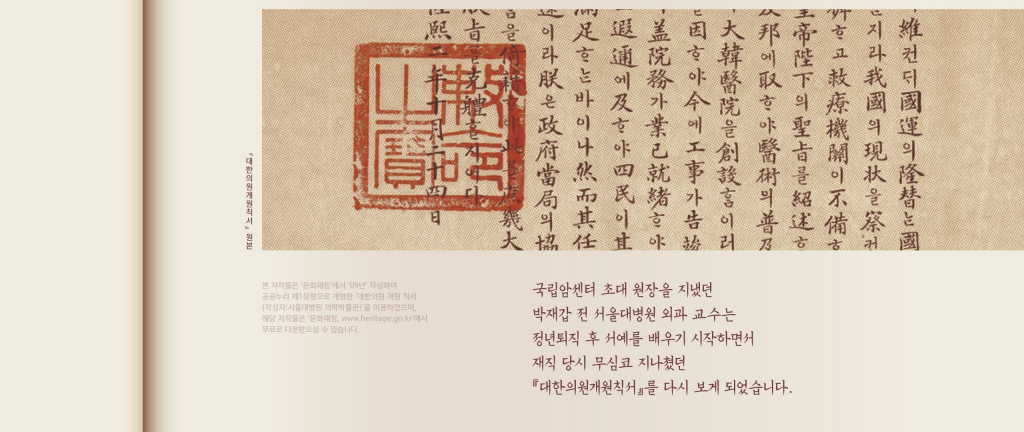 維컨뎌國運의隆替는國
지라我國의現狀을察컨
ᄒᆞ고救療機關이不備ᄒᆞ
皇帝陛下의聖旨를紹述ᄒᆞ
友邦에取ᄒᆞ야醫術의普及
大韓醫院을創設홈이러
因ᄒᆞ야今에工事가告竣
蓋院務가業已就緖ᄒᆞ야
遐邇에及ᄒᆞ야四民이其
滿足ᄒᆞ는바이나然而其任
이라朕은政府當局의協
을倚賴ᄒᆞ야此를庶幾大
旨를克體ᄒᆞᆯ지어다
隆熙二年十月二十四日
勅命之寶
『대한의원개원칙서』 원본
본 저작물은 '문화재청'에서 '09년' 작성하여
공공누리 제1유형으로 개방한 '대한의원 개원 칙서
(작성자:서울대병원 의학박물관)'을 이용하였으며,
해당 저작물은 '문화재청, www.heritage.go.kr'에서
무료로 다운받으실 수 있습니다.
국립암센터 초대 원장을 지냈던
박재갑 전 서울대병원 외과 교수는
정년퇴직 후 서예를 배우기 시작하면서
재직 당시 무심코 지나쳤던
『대한의원개원칙서』를 다시 보게 되었습니다.